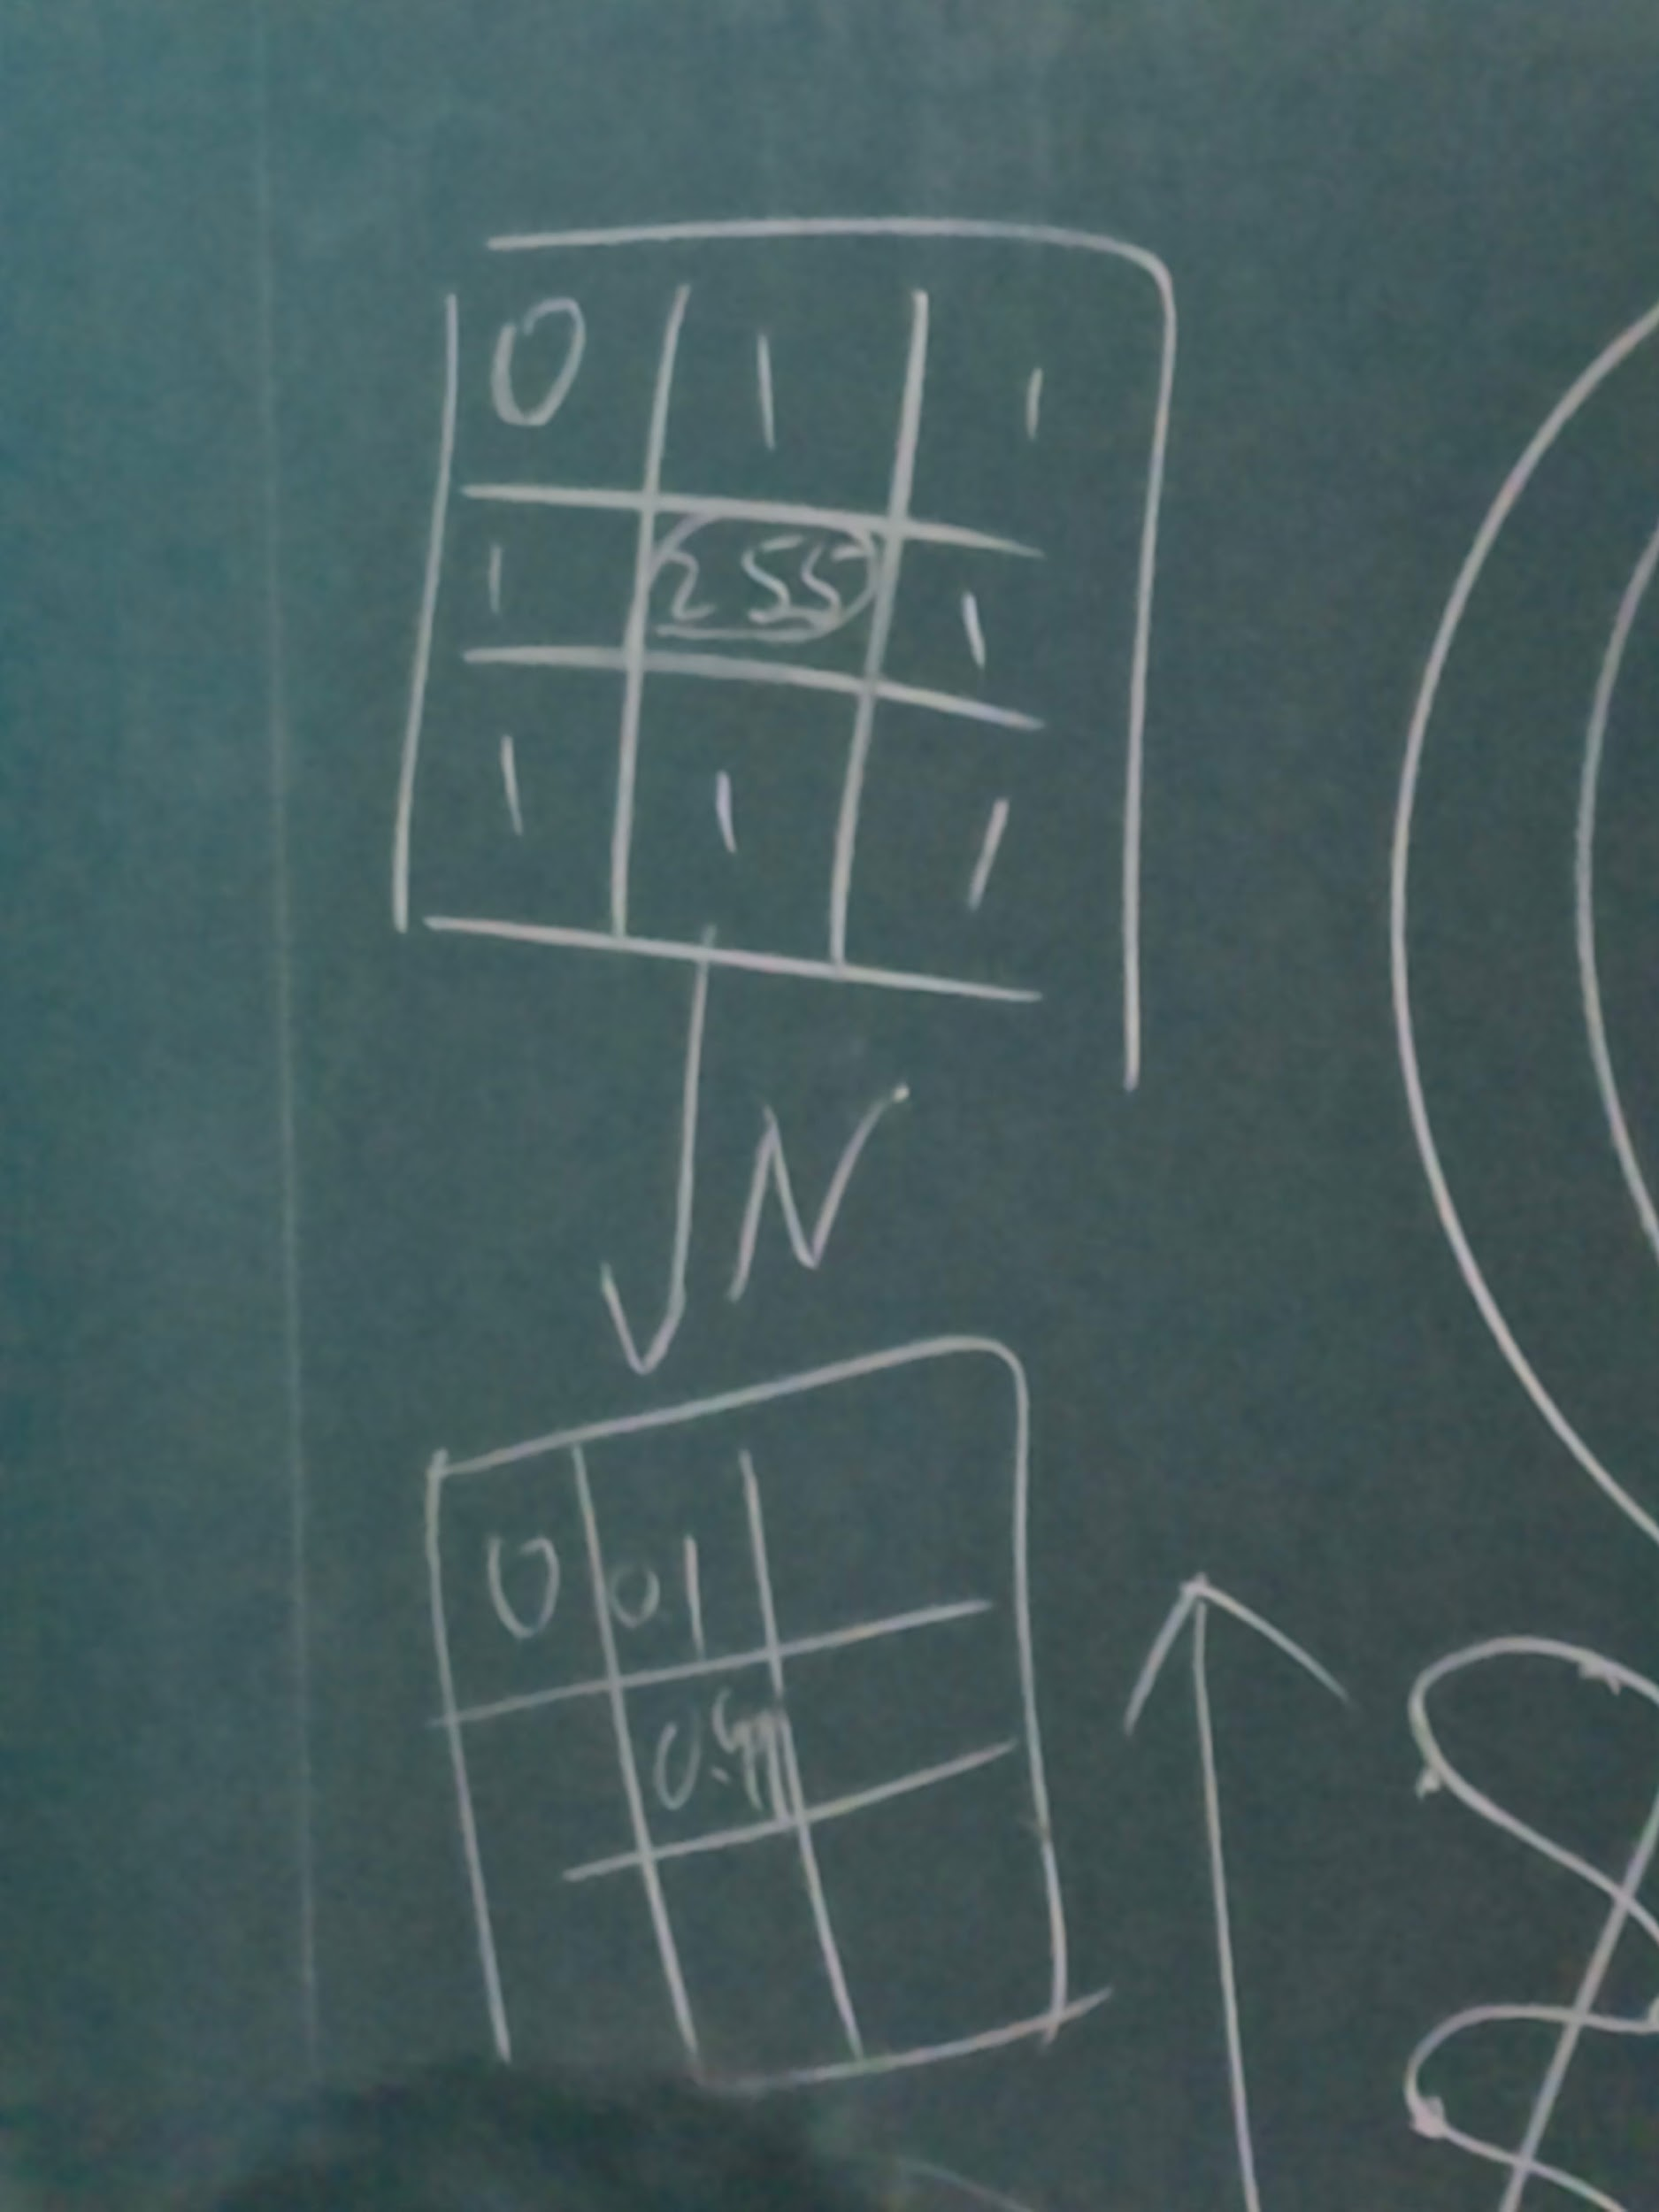 0 1 1
1 255 1
1 1 1
N
0 0 1
0.999